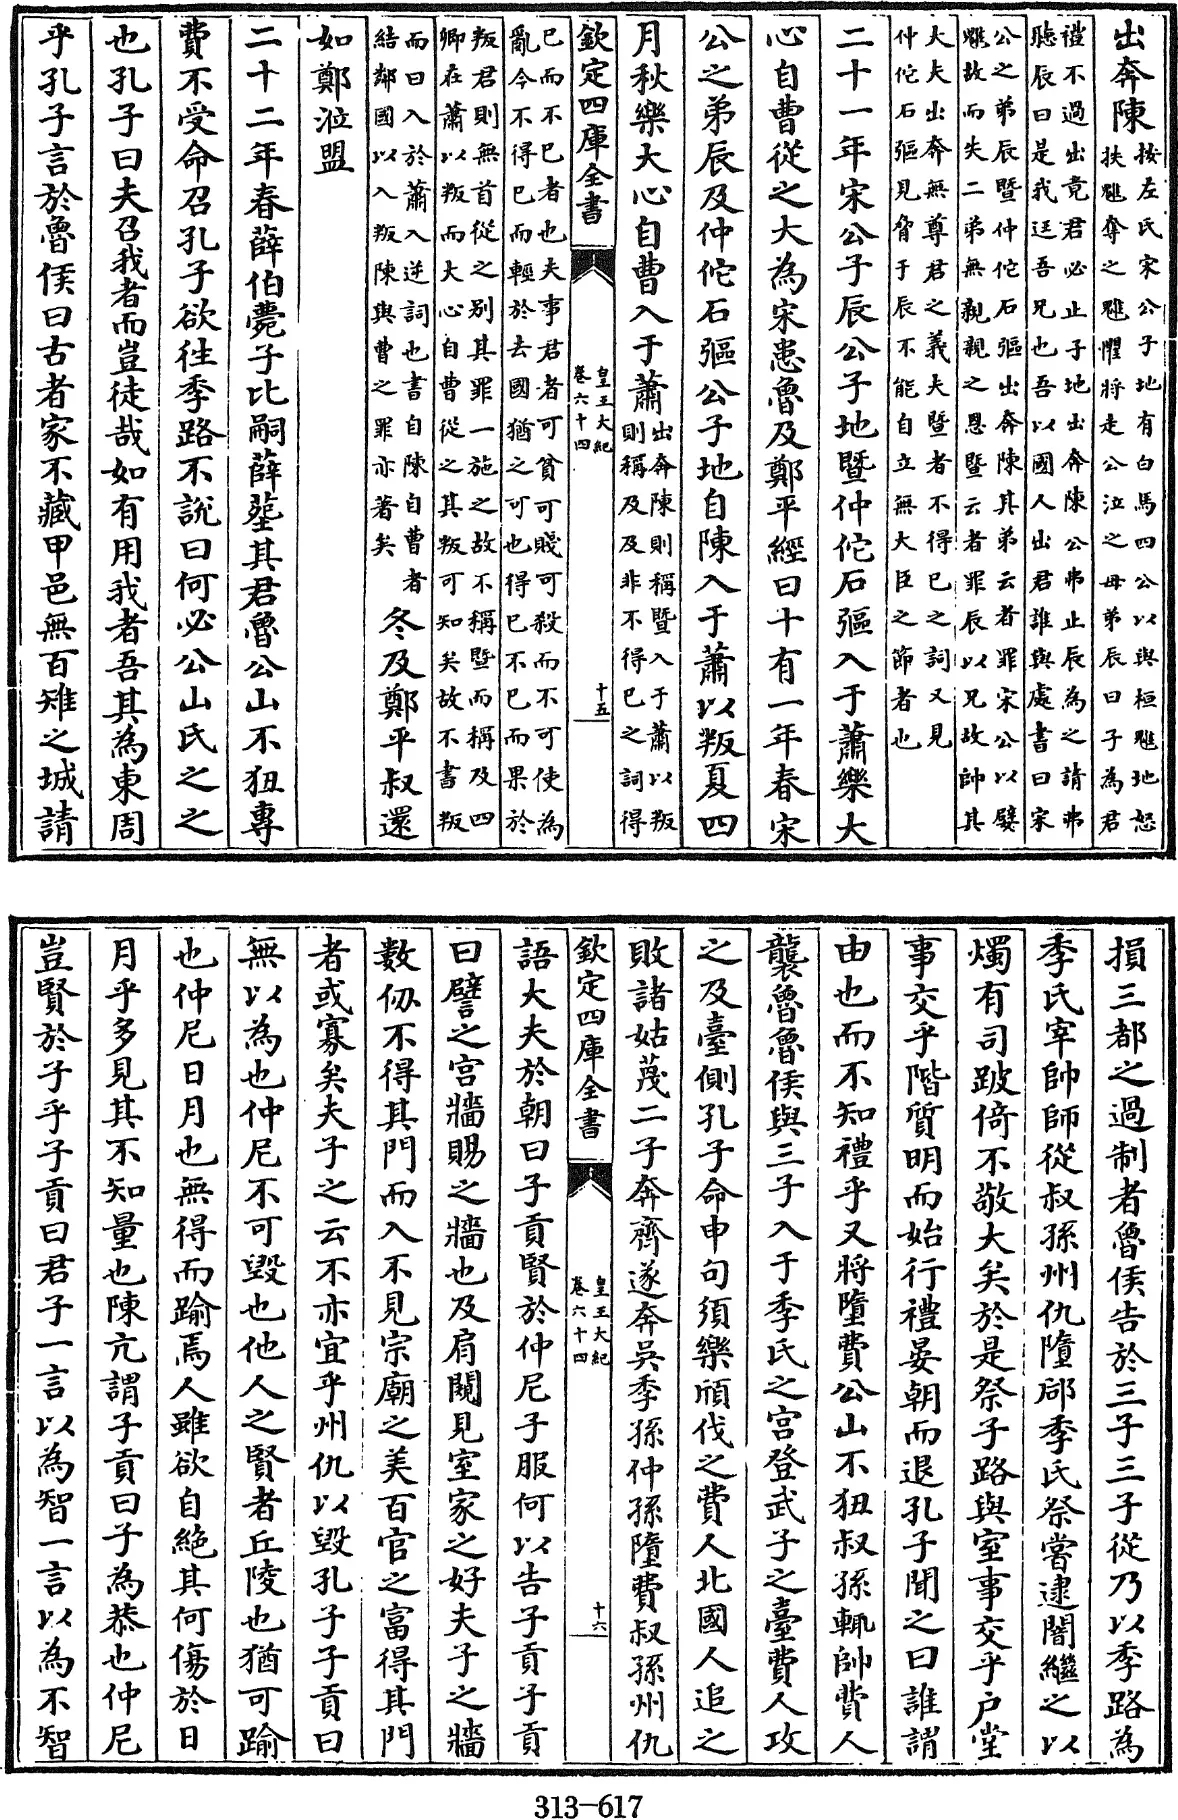 出奔陳按左氏宋公子地有白馬四公以與桓魋地怒
扶魋奪之魋懼將走公泣之母弟辰曰子為君
禮不過出竟君必止子地出奔陳公弗止辰為之請弗
聽辰曰是我迋吾兄也吾以國人出君誰與處書曰宋
公之弟辰暨仲佗石彄出奔陳其弟云者罪宋公以嬖
魋故而失二弟無親親之恩暨云者罪辰以兄故帥其
大夫出奔無尊君之義夫暨者不得已之詞又見
仲佗石彄見脅于辰不能自立無大臣之節者也
二十一年宋公子辰公子地暨仲佗石彄入于蕭樂大
心自曹從之大為宋患魯及鄭平經曰十有一年春宋
公之弟辰及仲佗石彄公子地自陳入于蕭以叛夏四
月秋樂大心自曹入于蕭出奔陳則稱暨入于蕭以叛
則稱及及非不得已之詞得
欽定四庫全書
皇王大紀
卷六十四
十五
已而不已者也夫事君者可貧可賤可殺而不可使為
亂今不得已而輕於去國猶之可也得已不已而果於
叛君則無首從之别其罪一施之故不稱暨而稱及四
卿在蕭以叛而大心自曹從之其叛可知矣故不書叛
而曰入於蕭入逆詞也書自陳自曹者
結鄰國以入叛陳與曹之罪亦著矣冬及鄭平叔還
如鄭涖盟
二十二年春薛伯薨子比嗣薛塟其君魯公山不狃專
費不受命召孔子欲往季路不說曰何必公山氏之之
也孔子曰夫召我者而豈徒哉如有用我者吾其為東周
乎孔子言於魯侯曰古者家不藏甲邑無百雉之城請
損三都之過制者魯侯告於三子三子從乃以季路為
季氏宰帥師從叔孫州仇墮郈季氏祭嘗逮闇繼之以
燭有司跛倚不敬大矣於是祭子路與室事交乎户堂
事交乎階質明而始行禮晏朝而退孔子聞之曰誰謂
由也而不知禮乎又將墮費公山不狃叔孫輒帥費人
襲魯魯侯與三子入于季氏之宫登武子之臺費人攻
之及臺側孔子命申句須樂頎伐之費人北國人追之
敗諸姑蔑二子奔齊遂奔吳季孫仲孫墮費叔孫州仇
欽定四庫全書
皇王大紀
卷六十四
十六
語大夫於朝曰子貢賢於仲尼子服何以告子貢子貢
曰譬之宫牆賜之牆也及肩闚見室家之好夫子之牆
數仞不得其門而入不見宗廟之美百官之富得其門
者或寡矣夫子之云不亦宜乎州仇以毀孔子子貢曰
無以為也仲尼不可毀也他人之賢者丘陵也猶可踰
也仲尼日月也無得而踰焉人雖欲自絕其何傷於日
月乎多見其不知量也陳亢謂子貢曰子為恭也仲尼
豈賢於子乎子貢曰君子一言以為智一言以為不智
313-617